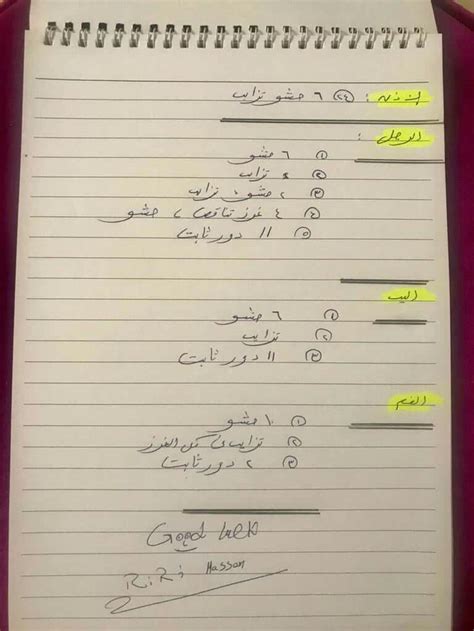 الاذن : (٢٤) ٦ حشو تزايد
الرجل :
(١) ٦ حشو
(٢) تزايد
(٣) ٢ حشو ، تزايد
(٤) ٤ غرز تناقص ، حشو
(٥) ١١ دور ثابت
اليد
(١) ٦ حشو
(٢) تزايد
(٣) ١١ دور ثابت
الفم
(١) ١٠ حشو
(٢) تزايد في كل الغرز
(٣) ٢ دور ثابت
Good luck
RiRi Hassan